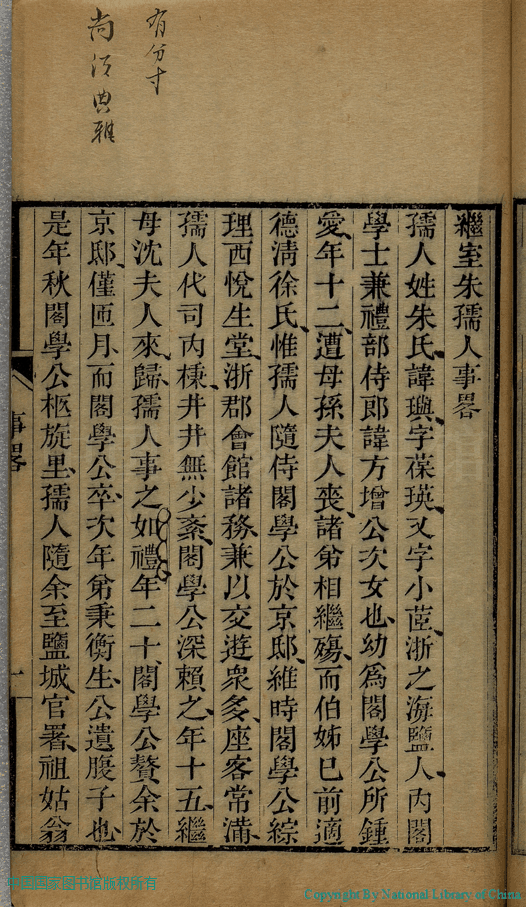 有分寸
尚須典雅
繼室朱孺人事畧
孺人姓朱氏諱璵字葆瑛又字小茝浙之海鹽人內閣
學士兼禮部侍郎諱方增公次女也幼爲閣學公所鍾
愛年十二遭母孫夫人喪諸弟相繼殤而伯姊已前適
德清徐氏惟孺人隨侍閣學公於京邸維時閣學公綜
理西悅生堂浙郡會館諸務兼以交遊衆多座客常滿
孺人代司內棅井井無少紊閣學公深賴之年十五繼
母沈夫人來歸孺人事之如禮年二十閣學公贅余於
京邸僅匝月而閣學公卒次年弟秉衡生公遺腹子也
是年秋閣學公柩旋里孺人隨余至鹽城官署祖姑翁
事畧
一
中国国家图书馆版权所有
Copyright By National Library of China